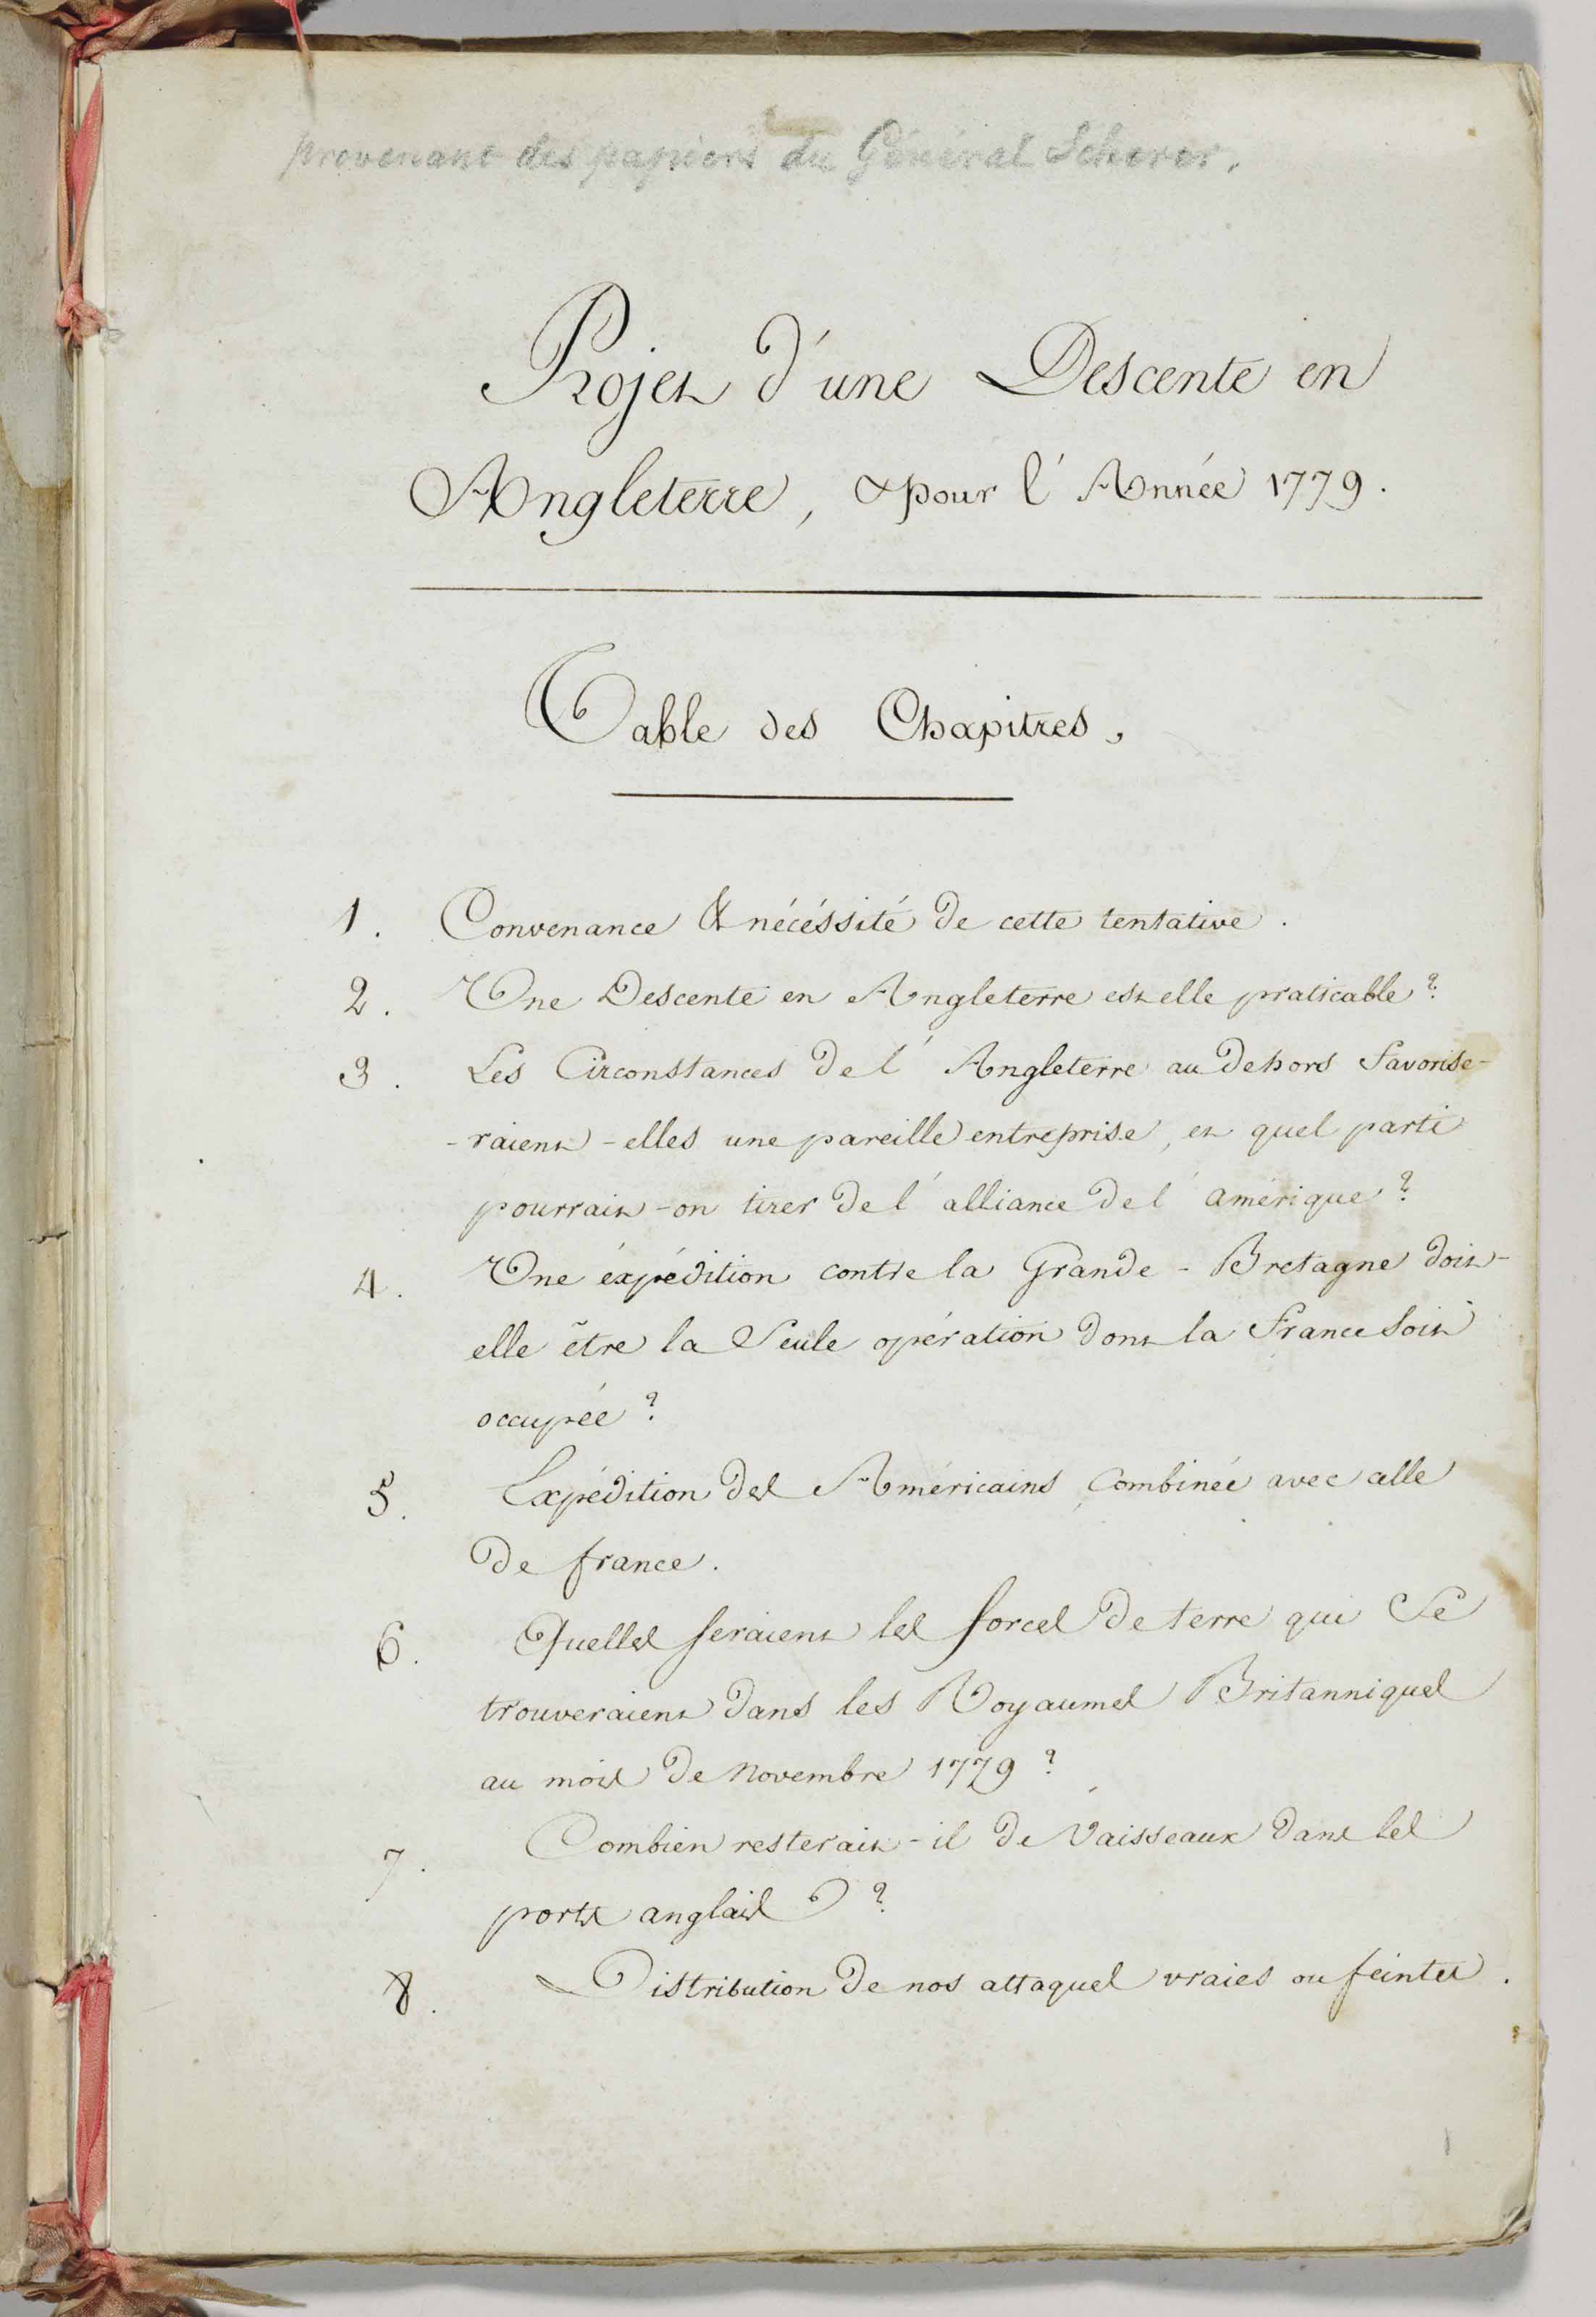 provenant des papiers du Général Scherer.
Projet d'une Descente en
Angleterre, pour l'Année 1779.
Table des Chapitres,
1. Convenance & nécéssité de cette tentative.
2. Une Descente en Angleterre est elle praticable?
3. Les Circonstances de l'Angleterre au dehors favorise-
-raient-elles une pareille entreprise, et quel parti
pourrait-on tirer de l'alliance de l'amérique?
4. Une éxpédition contre la Grande-Bretagne doit-
elle être la Seule opération dont la France soit
occupée?
5. Expédition des Américains combinée avec celle
de france.
6. Quelles seraient les forces de terre qui se
trouveraient dans les Royaumes Britanniques
au mois de Novembre 1779?
7. Combien resterait-il de Vaisseaux dans les
ports anglais?
8. Distribution de nos attaques vraies ou feintes.